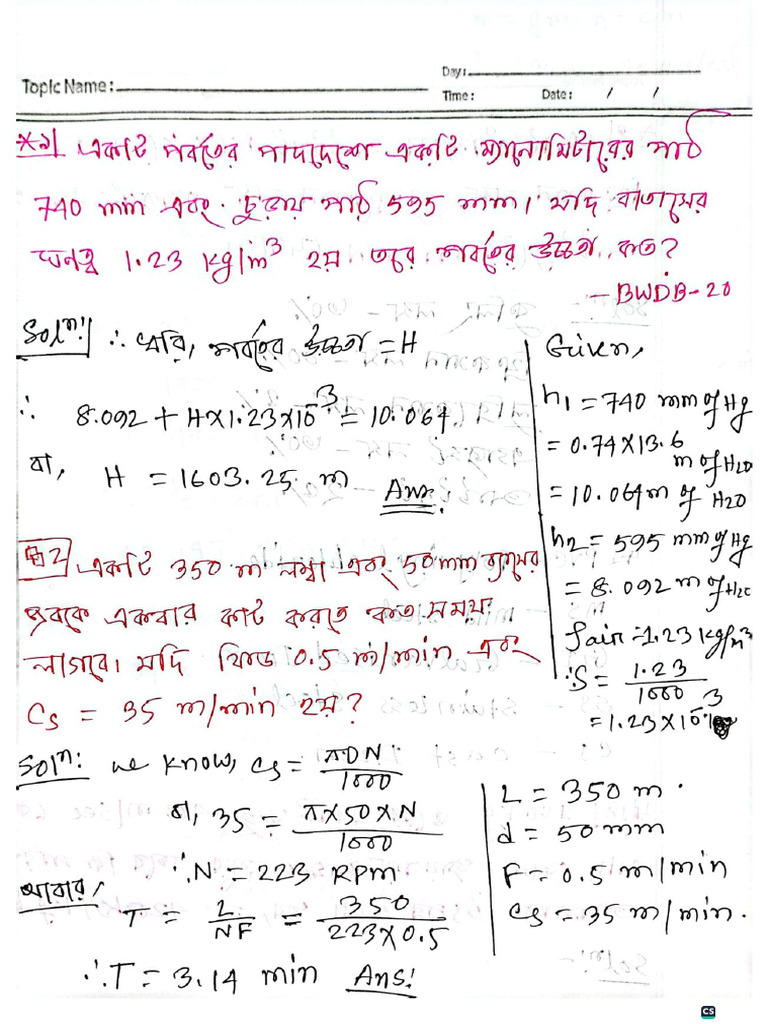 Topic Name:
Day:
Time: Date: / /
*১। একটি পর্বতের পাদদেশে একটি ম্যানোমিটারের পাঠ
740 mm এবং চুড়ায় পাঠ 595 mm। যদি বাতাসের
ঘনত্ব 1.23 kg/m³ হয় তবে পর্বতের উচ্চতা কত?
- BWDB-20
Solⁿ: ∴ ধরি, পর্বতের উচ্চতা = H
∴ 8.092 + H×1.23×10⁻³ = 10.064
বা, H = 1603.25 m Ans:
Given,
h1 = 740 mm of Hg
= 0.74×13.6 m of H2O
= 10.064 m of H2O
h2 = 595 mm of Hg
= 8.092 m of H2O
ρair = 1.23 kg/m³
∴S = 1.23/1000
= 1.23×10⁻³
2 একটি 350 m লম্বা এবং 50 mm ব্যাসের
জবকে একবার কাট করতে কত সময়
লাগবে। যদি ফিড 0.5 m/min এবং
Cs = 35 m/min হয়?
Solⁿ: we know, Cs = πDN/1000
বা, 35 = π×50×N/1000
∴N = 223 RPM
আবার, T = L/NF = 350/223×0.5
∴T = 3.14 min Ans:
L = 350 m.
d = 50 mm
F = 0.5 m/min
Cs = 35 m/min.
CS